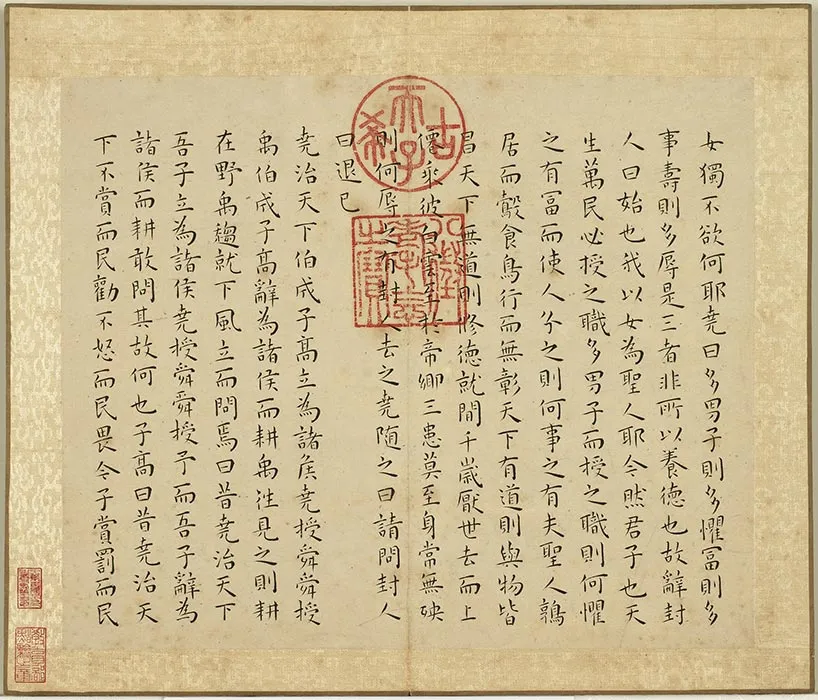 女獨不欲何耶堯曰多男子則多懼富則多
事壽則多辱是三者非所以養德也故辭封
人曰始也我以女為聖人耶今然君子也天
生萬民必授之職多男子而授之職則何懼
之有富而使人分之則何事之有夫聖人鶉
居而鷇食鳥行而無彰天下有道則與物皆
昌天下無道則修德就閒千歲厭世去而上
僊乘彼白雲至於帝鄉三患莫至身常無殃
則何辱之有封人去之堯隨之曰請問封人
曰退已
堯治天下伯成子高立為諸侯堯授舜舜授
禹伯成子高辭為諸侯而耕禹往見之則耕
在野禹趨就下風立而問焉曰昔堯治天下
吾子立為諸侯堯授舜舜授予而吾子辭為
諸侯而耕敢問其故何也子高曰昔堯治天
下不賞而民勸不怒而民畏今子賞罰而民
古希天子
八徵耄念之寶